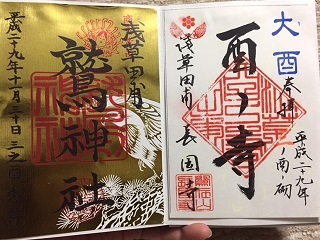 浅草田甫
鷲神社
平成二十九年十一月三十日 三之
大酉
奉拝
平成二九年
酉ノ寺
浅草田甫 長国寺